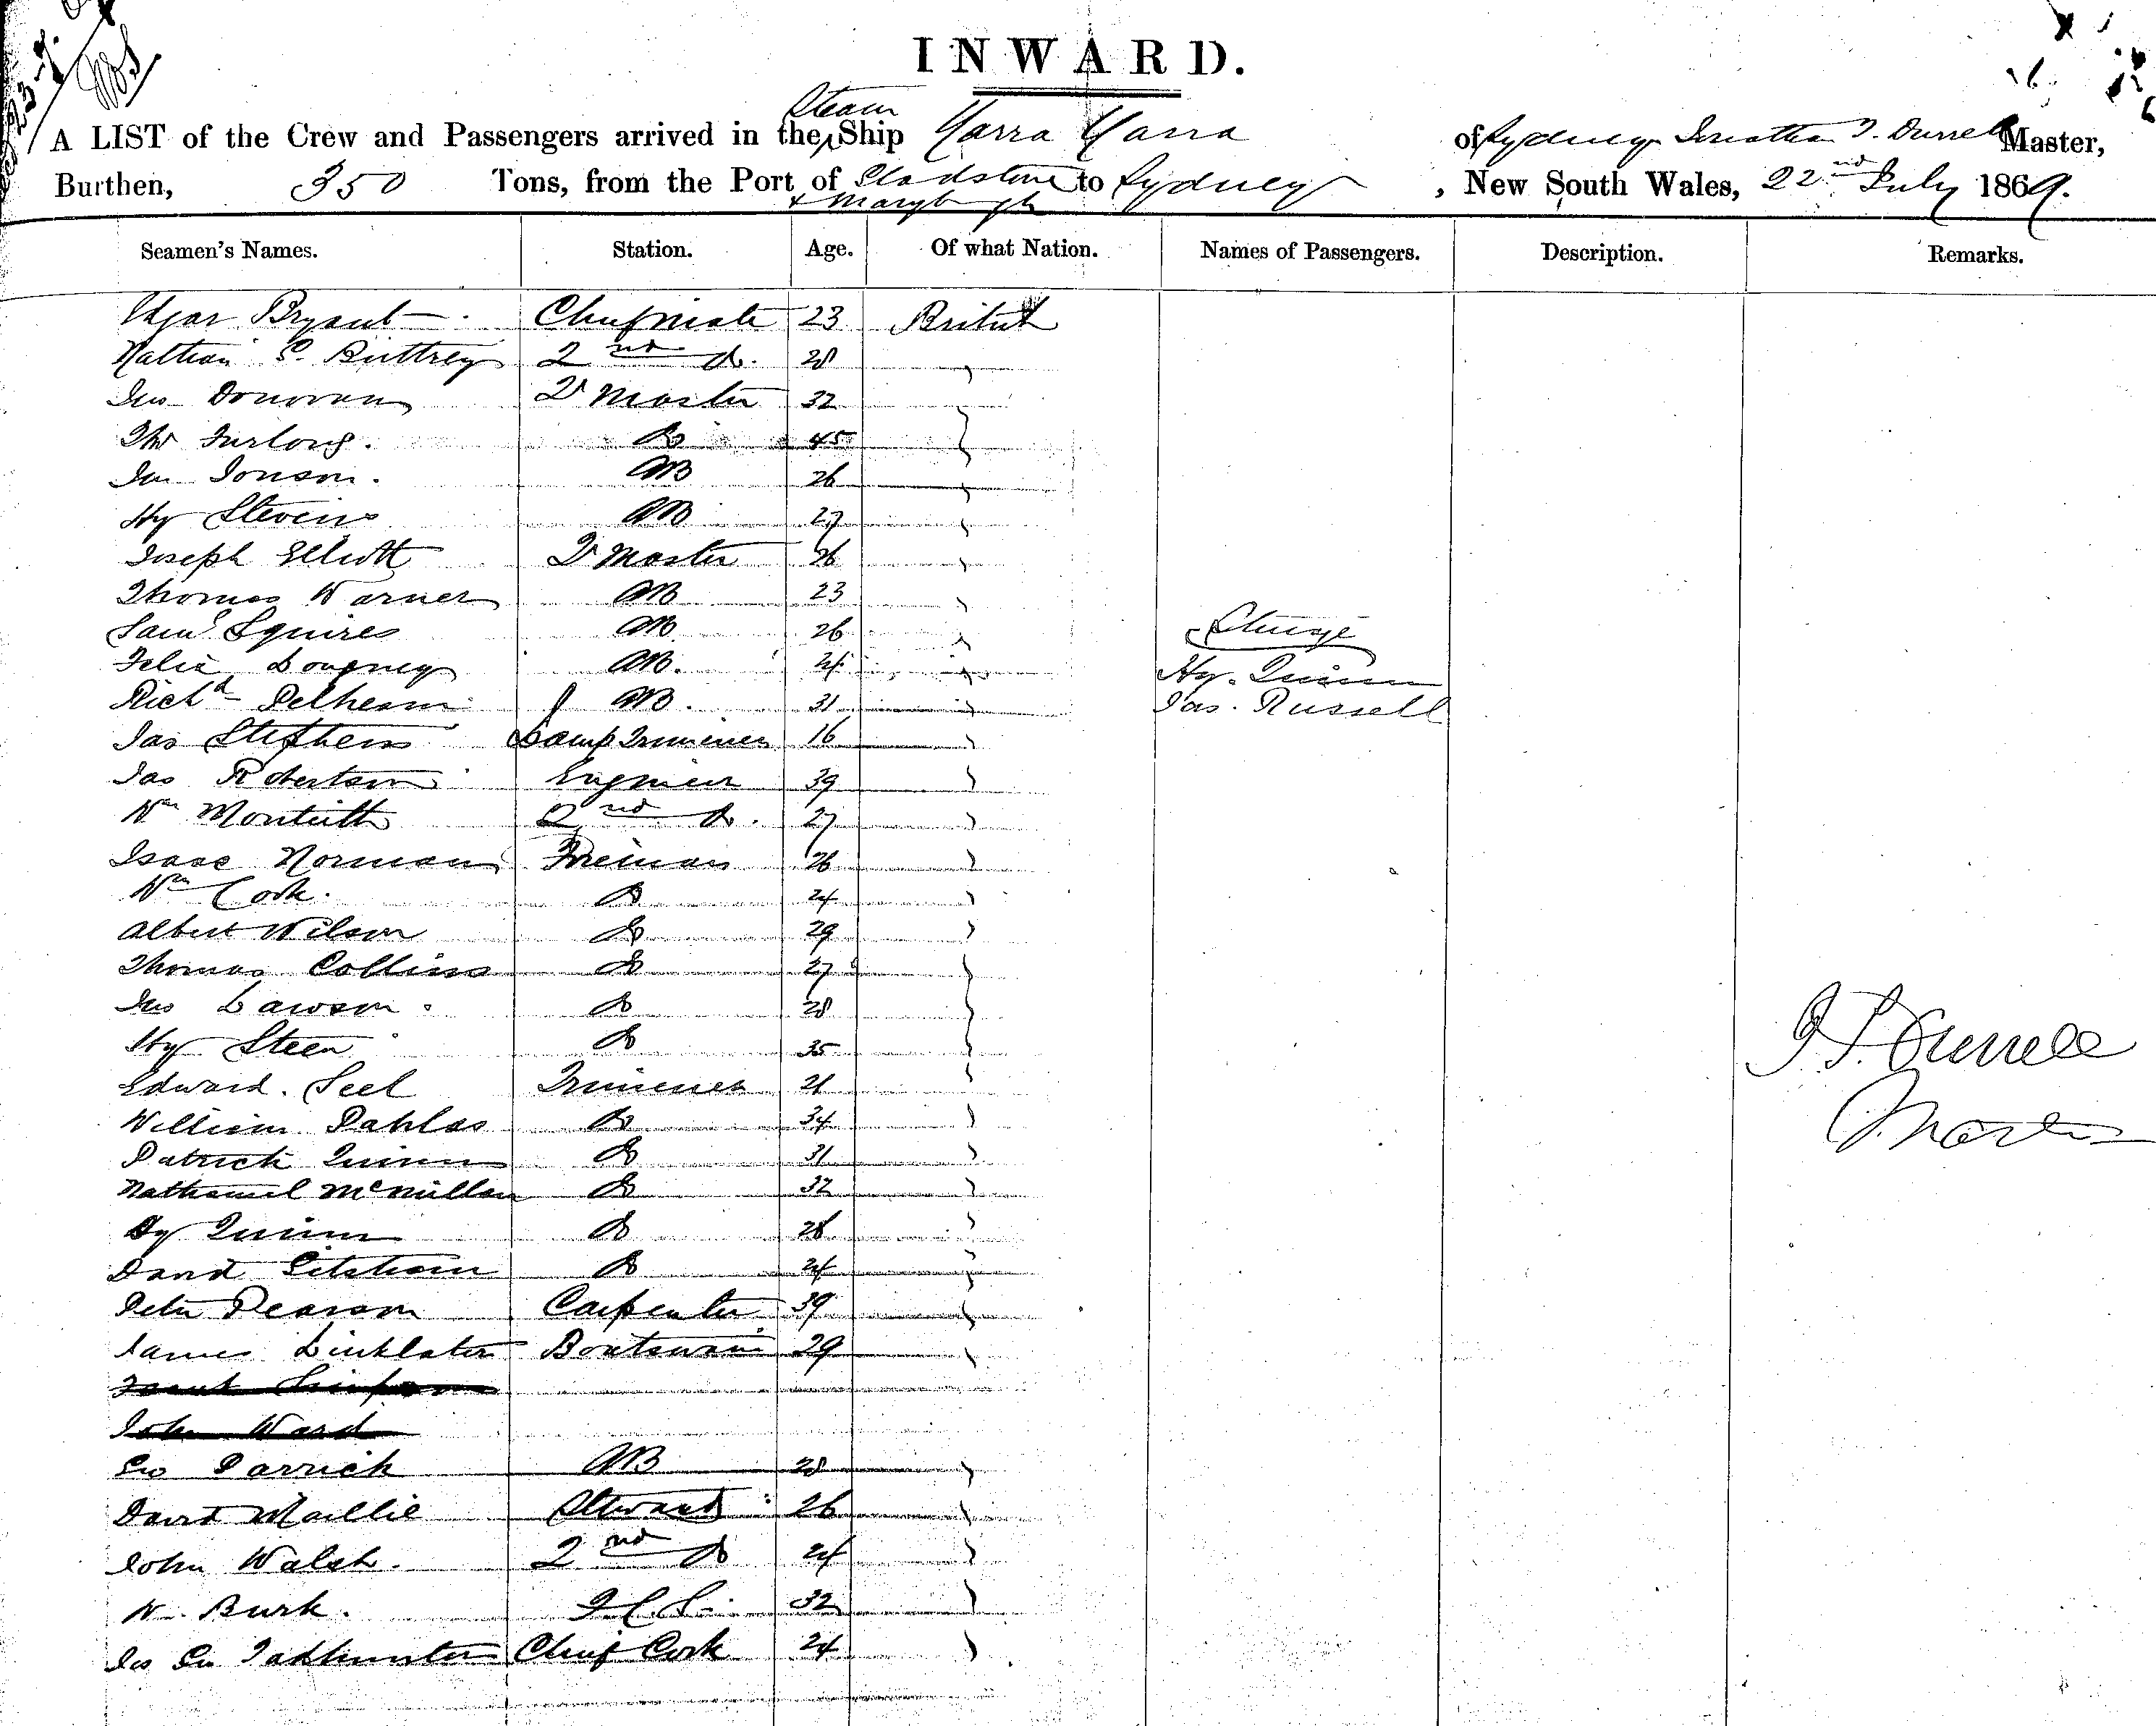 INWARD.
A LIST of the Crew and Passengers arrived in the Steam Ship Yarra Yarra of Sydney Jonathan T. Durrell Master,
Burthen, 350 Tons, from the Port of Gladstone & Marybrgh to Sydney, New South Wales, 22nd July 1869.
Seamen's Names. Station. Age. Of what Nation. Names of Passengers. Description. Remarks.
Bryant Chief mate 23 British
Nathan S. Buttrey 2nd Do. 28 "
Jno Donovan Qr Master 32 "
Thos Furlong. Do 45 "
Jno Jonson. AB 26 "
Hy Stevens AB 27 "
Joseph Elliott Qr Master 26 "
Thomas Warner AB 23 "
Saml Squires AB 26 " Steerage
Felix AB. " Hy. Quinn
Richd Pelham AB. 31 " Jas. Russell
Jas Stephens Lamp Trimmer 16 "
Jas Robertson Engineer 39 "
Wm Monteith 2nd Do. 27 "
Isaac Norman Fireman 26 "
Wm Cook. Do 24 "
Albert Wilson Do 29 "
Thomas Collins Do 27 "
Jno Lawson Do 28 "
Hy Steen Do 35 "
J. T. Durrell
Edward. Seel Trimmer 21 "
William Pahlas Do 34 "
Master
Patrick Quinn Do 31 "
Nathaniel McMillan Do 32 "
Hy Quinn Do 28 "
David Do 24 "
Peter Pearson Carpenter 39 "
James Linklater Boatswain 29 "
John Ward
Geo Parrick AB 28 "
David Maillie Steward 26 "
John Walsh. 2nd Do 24 "
W. Burk. F.C.S. 32 "
Jno Geo Chief Cook 24 "